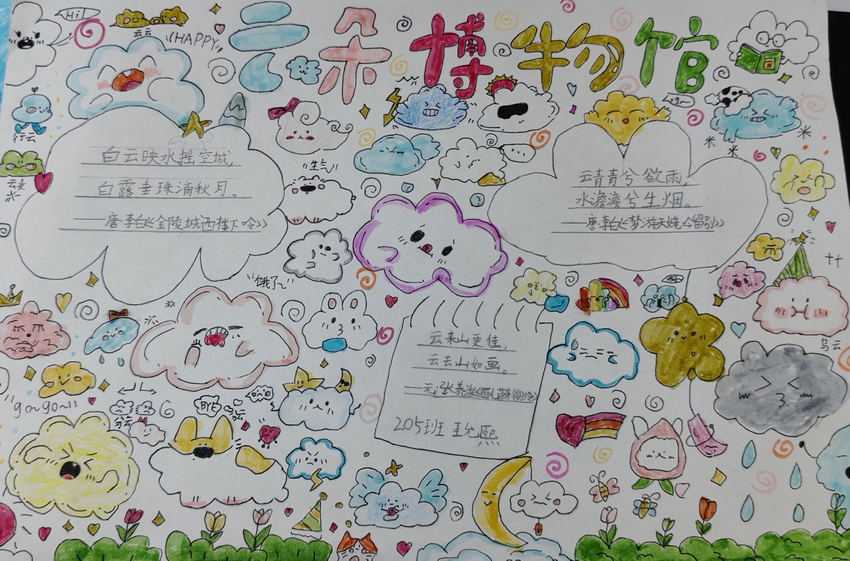 云朵博物馆
Hi
云云
HAPPY
行云
白云映水摇空城,
白露垂珠滴秋月。
——唐·李白《金陵城西楼下吟》
生气
云青青兮欲雨,
水澹澹兮生烟。
——唐·李白《梦游天姥吟留别》
饿了~
云来山更佳,
云去山如画。
205班
乌云
go~go~!!